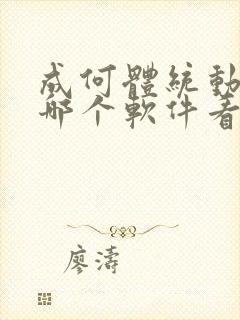 成何體統動
哪个軟件看
廖濤